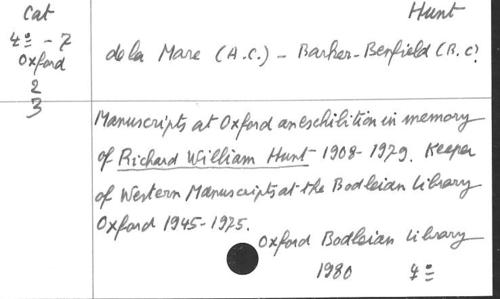 Cat
4º - 7
Oxford
2
3
Hunt
de la Mare (A.C.) - Barker-Benfield (B.C.)
Manuscripts at Oxford an eschilition in memory
of Richard William Hunt 1908-1979. Keeper
of Western Manuscripts at the Bodleian Library
Oxford 1945-1975.
Oxford Bodleian Library
1980 4º